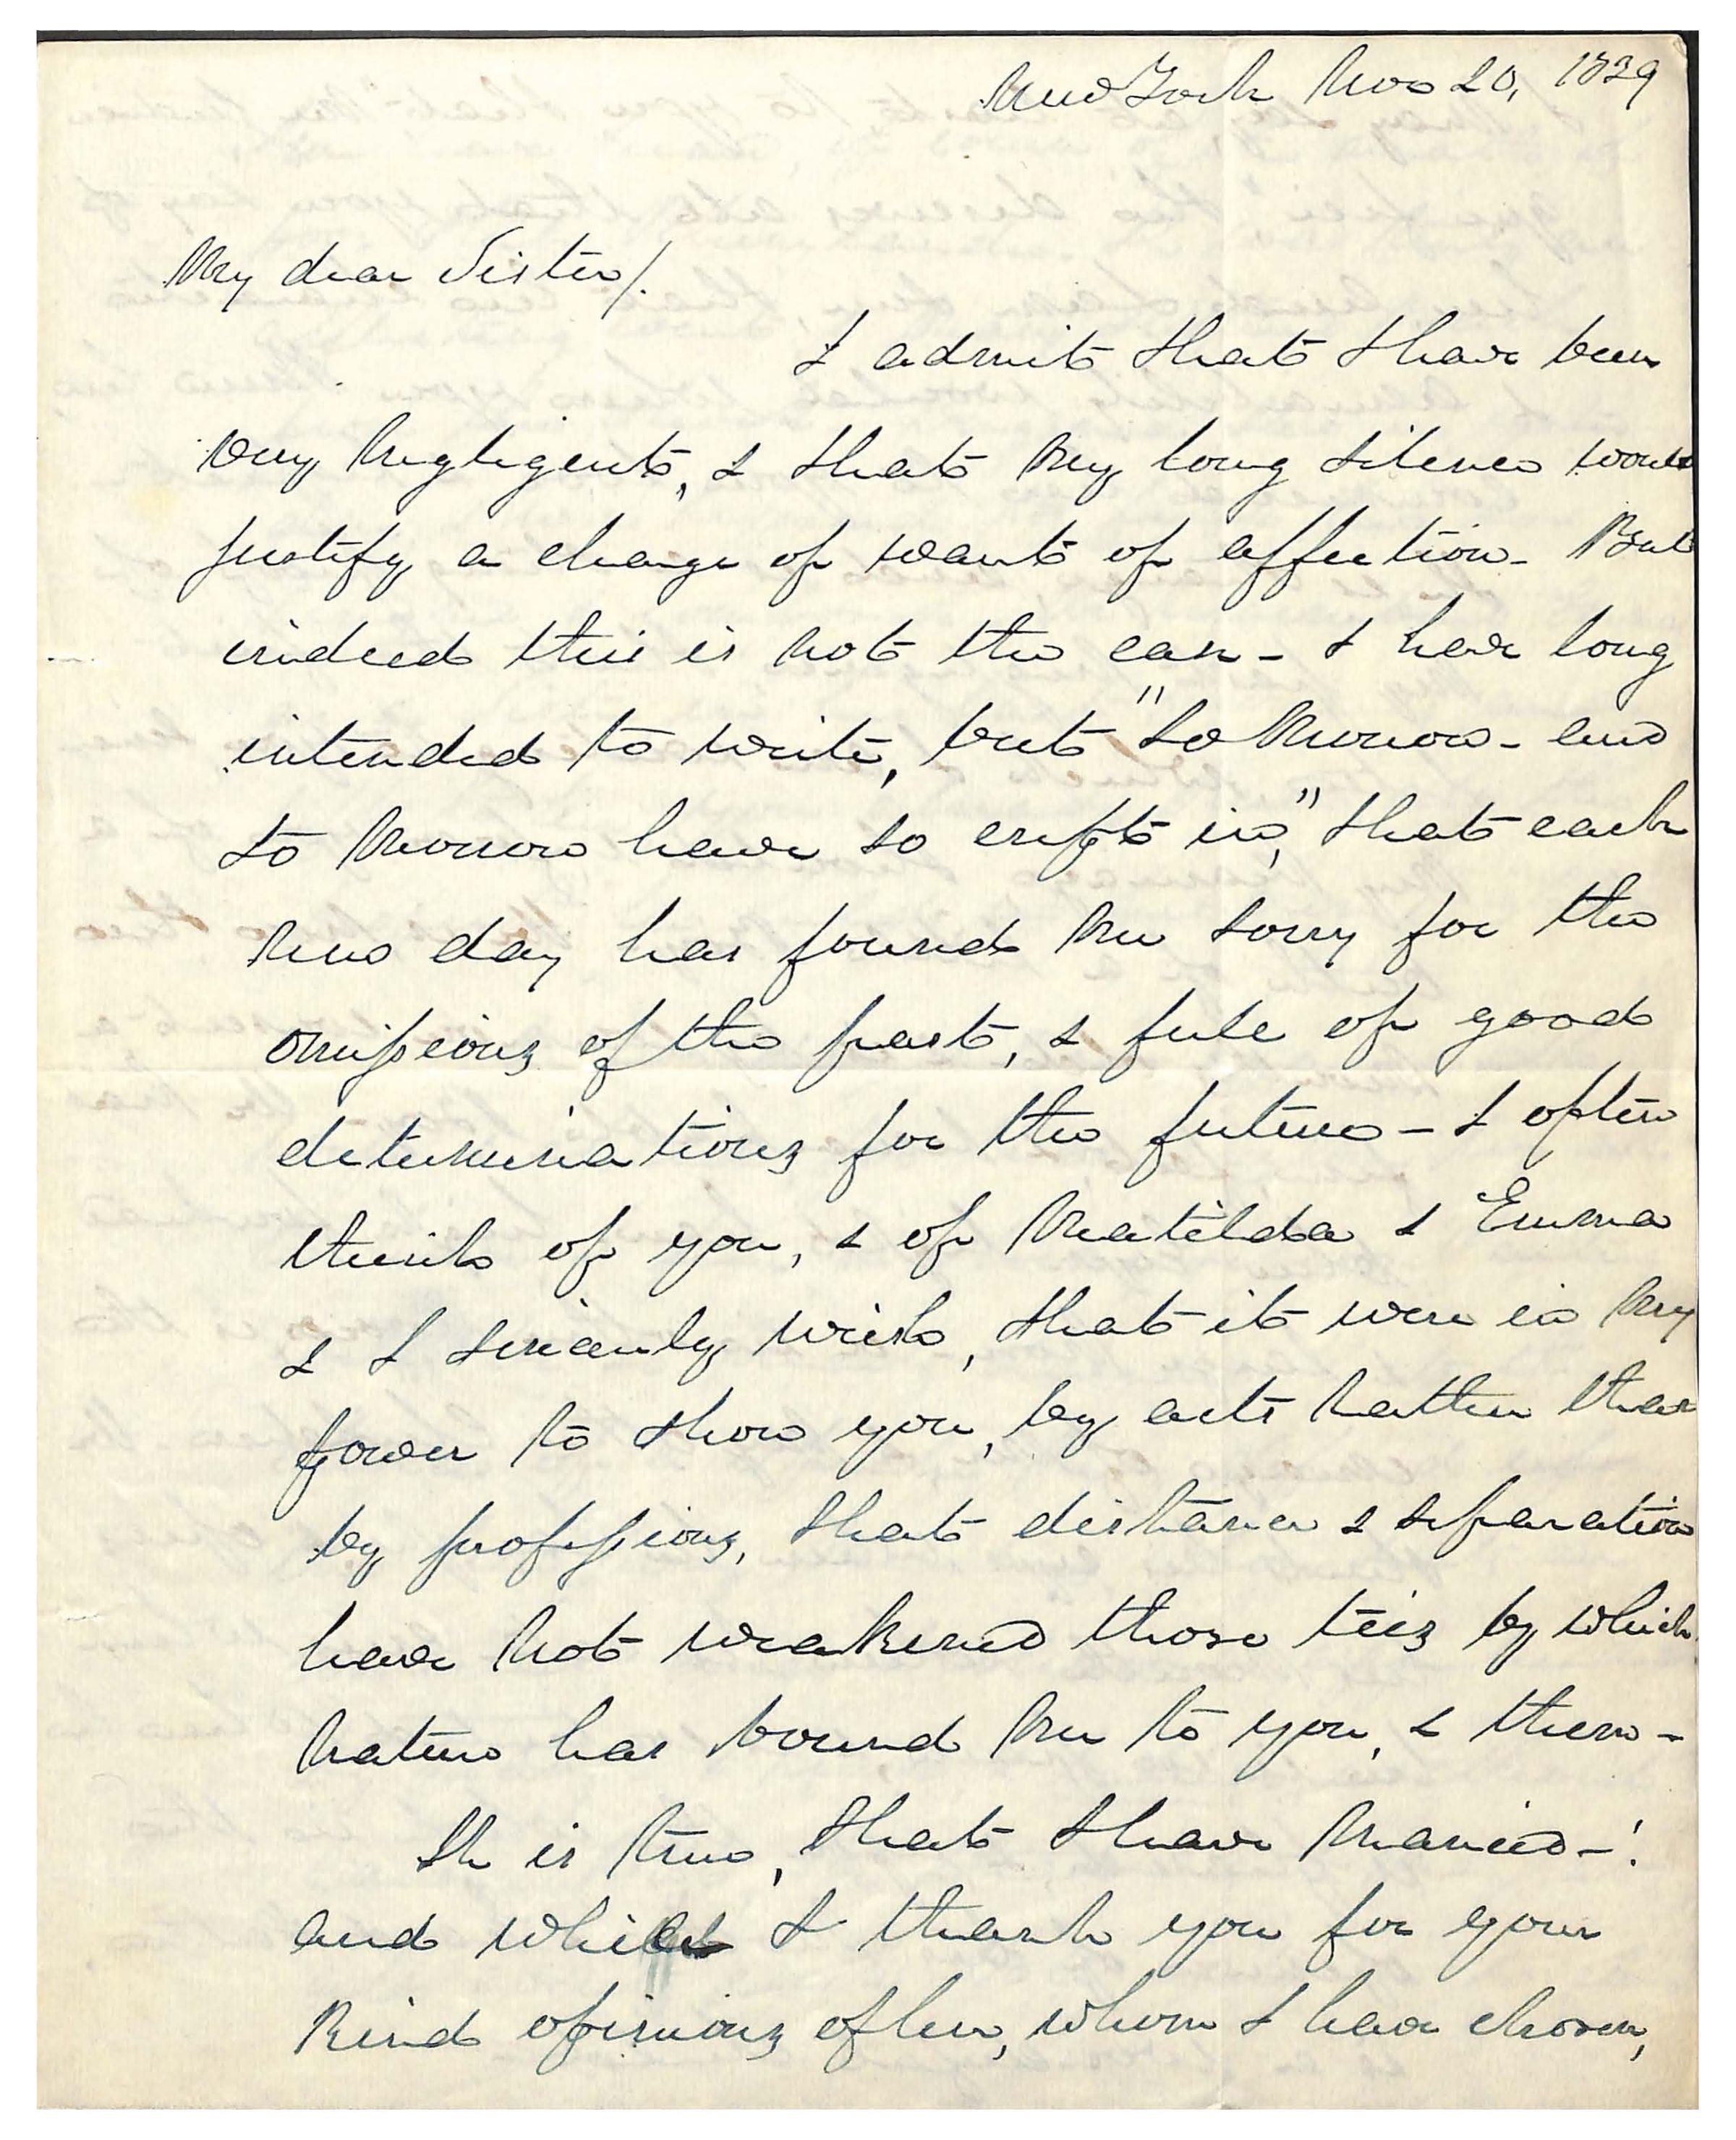 New York Nov 20, 1839
My dear Sister/.
I admit that I have been
very negligent, & that my long silence would
justify a charge of want of affection - But
indeed this is not the case - I have long
intended to write, but "to morrow - and
to morrow have so crept in," that each
new day has found me sorry for the
omissions of the past, & full of good
determinations for the future - I often
think of you, & of Matilda & Emma
& I sincerely wish, that it were in my
power to show you, by acts rather than
by professions, that distance & separation
have not weakened those ties by which
nature has bound me to you, & them -
It is true, that I have married - !
and whilst I thank you for your
kind opinions of her, whom I have chosen,